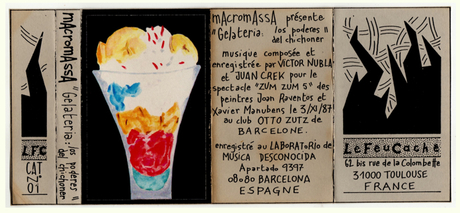 LFC
CAT
Nº
01
mAcromAssA "Gelateria: los poderes
del chichoner
mAcromAssA présente
"Gelateria: los poderes
del chichoner
musique composée et
enregistrée par VICTOR NUBLA
et JUAN CREK pour le
spectacle "ZUM ZUM 5" des
peintres Joan Raventos et
Xavier Manubens le 3/XI/87
au club OTTO ZUTZ de
BARCELONE.
enregistré au LABORAToRIo de
MÚSICA DESCONOCIDA
Apartado 9397
08080 BARCELONA
ESPAGNE
LeFeuCaché
61 bis rue de la Colombette
31000 TOULOUSE
FRANCE